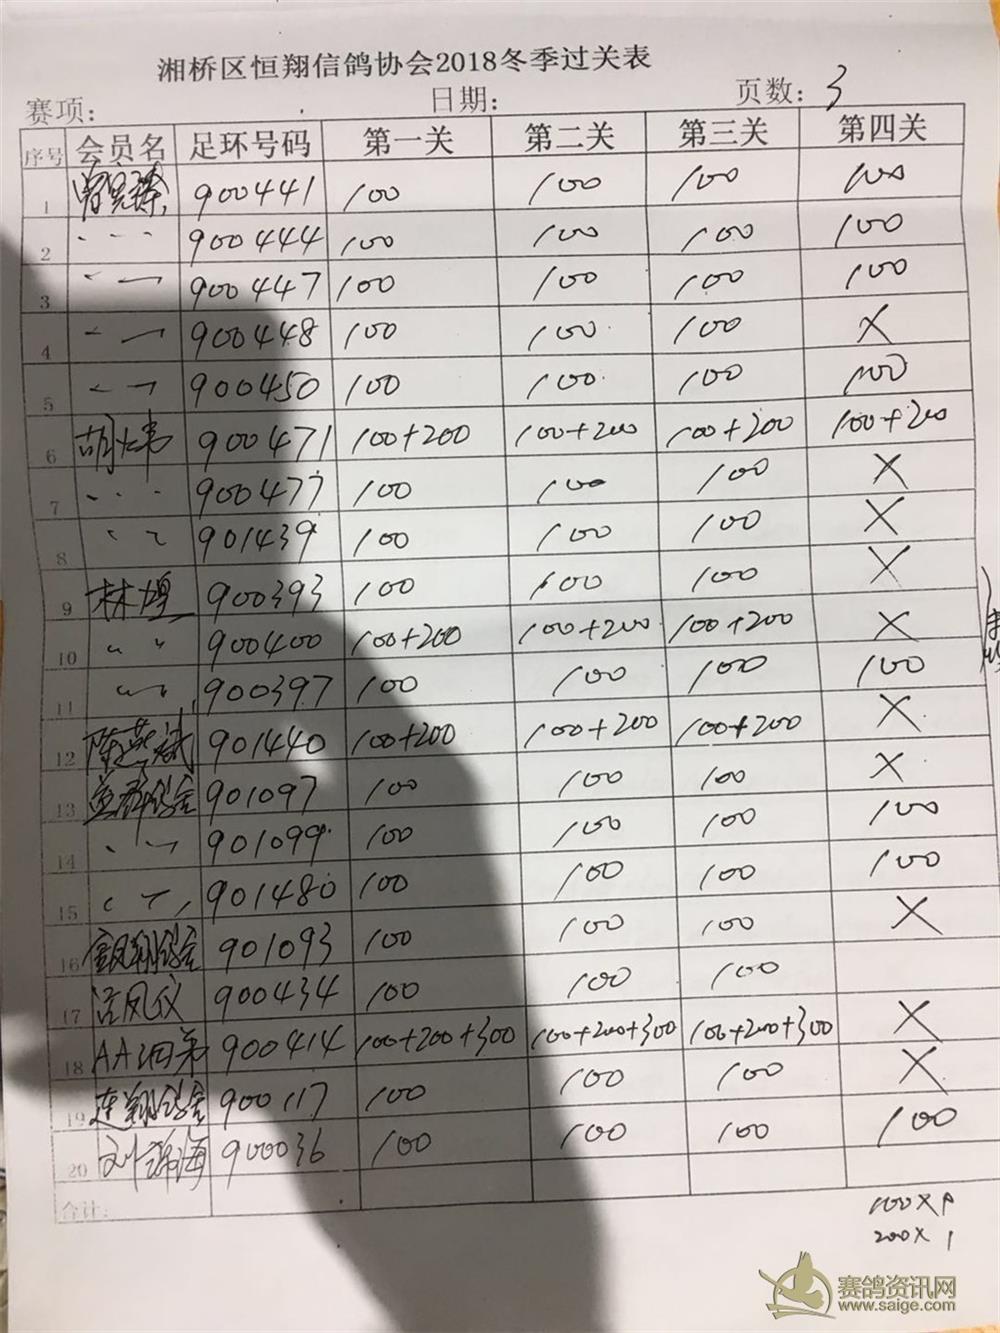 湘桥区恒翔信鸽协会2018冬季过关表
赛项: 日期: 页数: 3
序号 会员名 足环号码 第一关 第二关 第三关 第四关
1 900441 100 100 100 100
2 900444 100 100 100 100
3 900447 100 100 100 100
4 900448 100 100 100 X
5 900450 100 100 100 100
6 胡大弟 900471 100+200 100+200 100+200 100+200
7 900477 100 100 100 X
8 901439 100 100 100 X
9 林煌 900393 100 100 100 X
10 900400 100+200 100+200 100+200 X
11 900397 100 100 100 100
12 陈燕斌 901440 100+200 100+200 100+200 X
13 901097 100 100 100 X
14 901099 100 100 100 100
15 901480 100 100 100 100
16 901093 100 100 100 X
17 900434 100 100 100
18 AA 900414 100+200+300 100+200+300 100+200+300 X
19 900117 100 100 100 X
20 刘 海 900036 100 100 100 100
合计:
100X
200X 1
赛鸽资讯网
www.saige.com